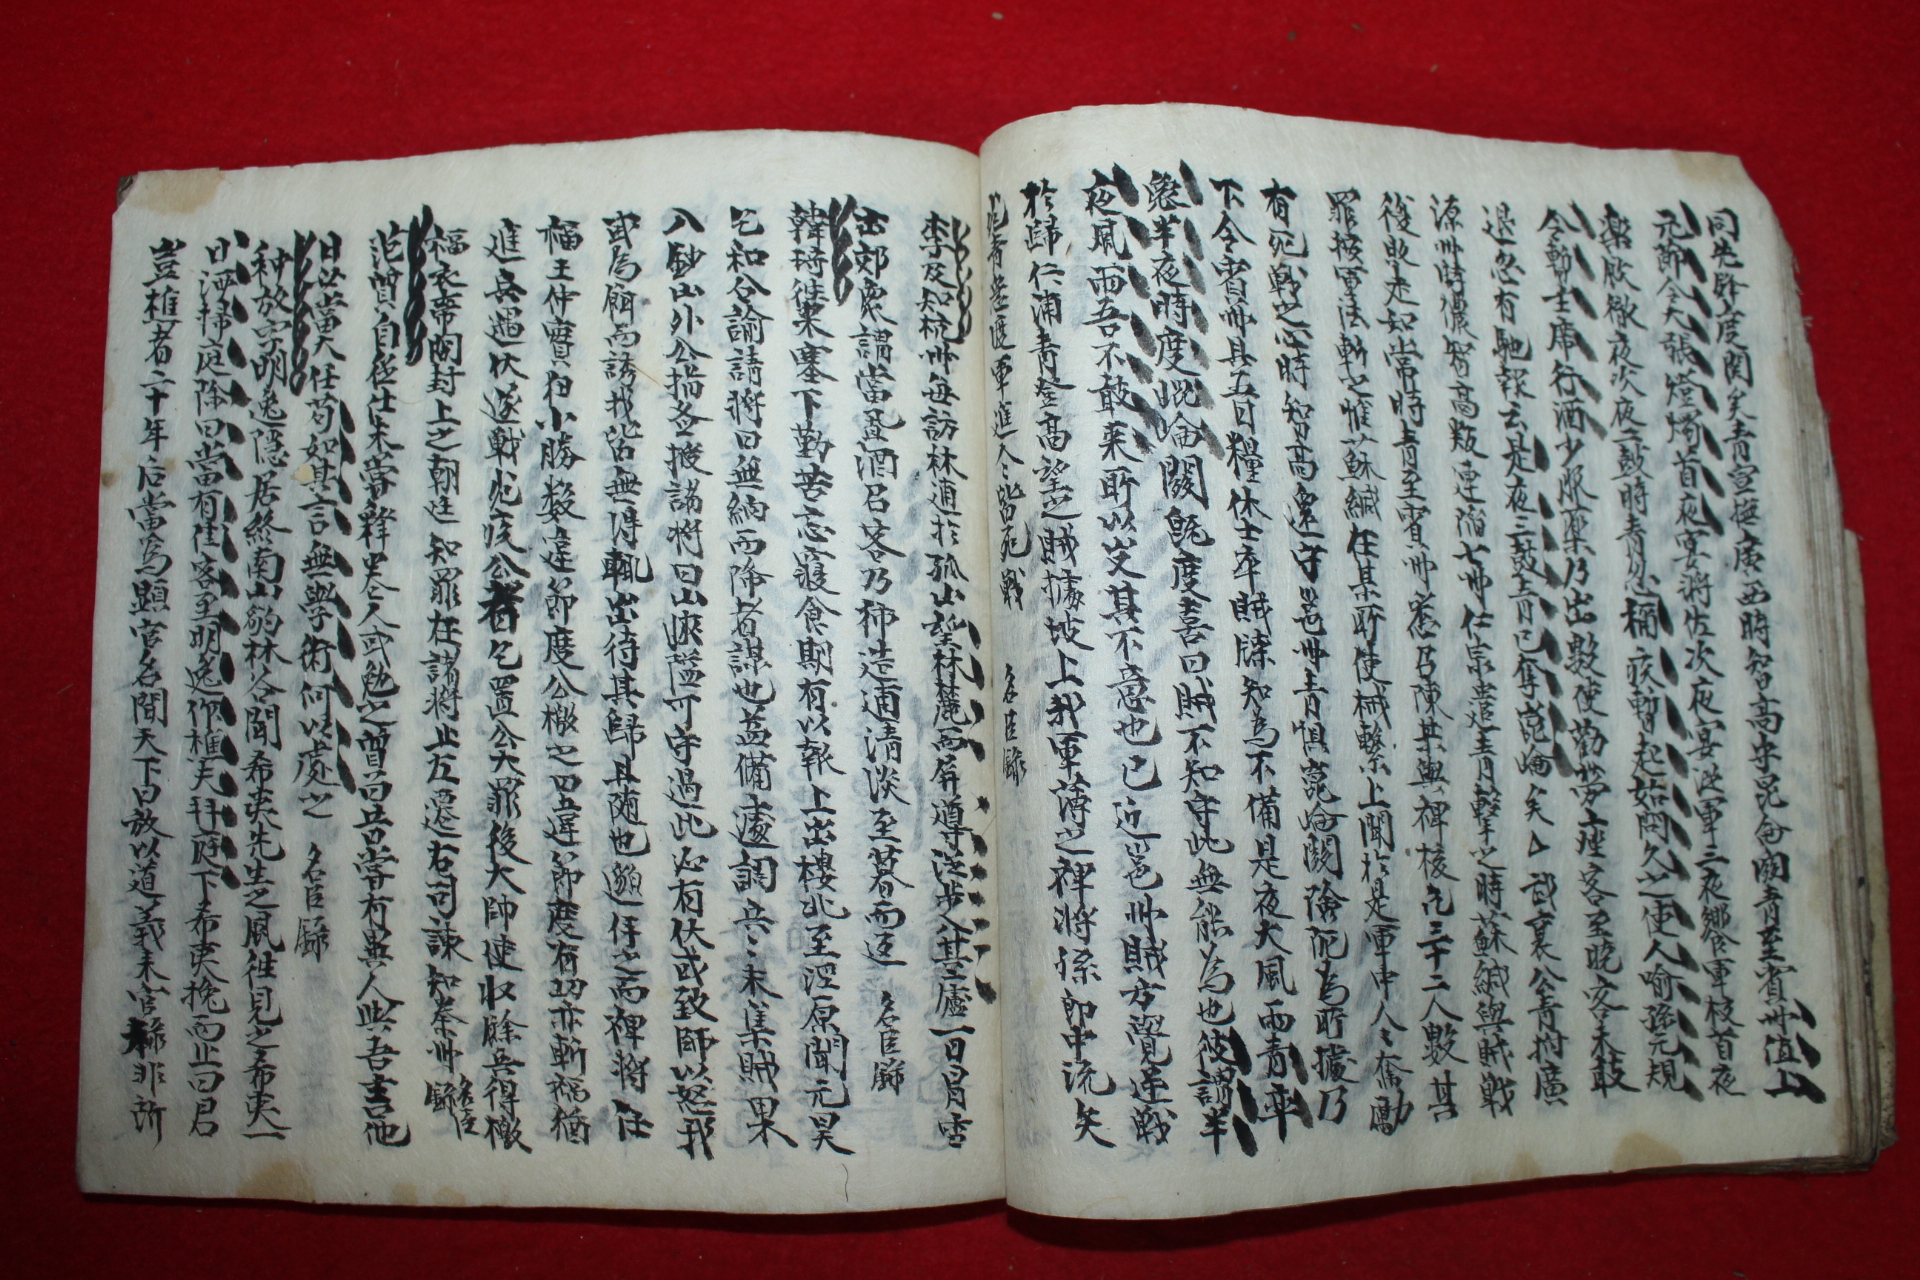 同先 度關矣青宣撫廣西時智高守昆侖關青至賓州值上
元節令大張燈燭首夜宴將佐次夜宴從軍三夜饗軍校首夜
樂飲徹夜次夜二鼓時青忽稱疾暫起如內久之使人喻孫元規
令暫主席行酒少服藥乃出數使勸勞座客至曉客未敢
退忽有馳報云是夜三鼓青已奪崑崙矣 武襄公青 廣
原州時儂智高叛連陷七州仁宗遣青擊之時蘇緘與賊戰
後敗走如常時青至賓州 召陳某與裨校凡三十二人數其
罪按軍法斬之惟蘇緘任某所使械繫上聞於是軍中人人奮勵
有死戰之心時智高還守邕州青懼崑崙關險阨為所據乃
下令賓州具五日糧休士卒賊諜知為不備是夜大風雨青率
眾半夜時度崑崙關既度喜曰賊不知守此無能為也彼謂半
夜風雨吾不敢來所以出其不意也已近邕州賊方覺逆戰
於歸仁浦青登高望之賊據坡上我軍薄之裨將孫節中流矢
死青 軍進人人皆死戰 名臣錄
李及知杭州每訪林逋於孤山望林麓而屏導從步入其廬一日冒雪
出郊眾謂當置酒召客乃 造逋清淡至暮而返 名臣錄
韓琦往來塞下勤苦忘寢食期有以報上出樓北至涇原聞元昊
乞和公諭諸將曰無納而降者謀也益備 調兵兵未集賊果
入 山外公指 授諸將曰山 隘可守過此必有伏或致師以怒我
或為餌而誘找皆無得輒出待其歸且 也邀 之而裨將任
福王仲寶狃小勝數違節度公檄之 違節度有功亦斬福猶
進兵遇伏遂戰死 公 乞置公大罪後大帥使收餘兵得檄
福衣帶間封上之朝廷知罪在諸將止左遷右司諫知秦州 名臣錄
范 自從仕未嘗釋卷人或勉之 曰 昔嘗有異人與吾言他
日必當大任苟如其言無學術何以處之 名臣錄
种放字明逸隱居終南山豹林谷聞希夷先生之風往見之希夷一
日洒掃庭除曰當有佳客至明逸作樵夫拜庭下希夷挽而止曰君
豈樵者二十年后當為顯官名聞天下曰放以道義來官祿非所